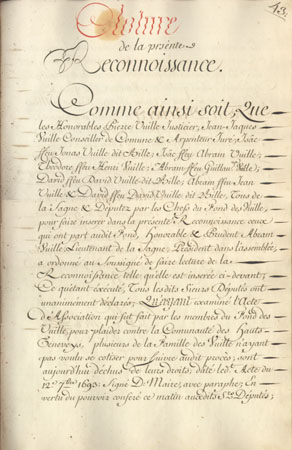 43.
Cloture
de la présente
Reconnoissance.
Comme ainsi soit, Que
les Honorables Pierre Vuille Justicier, Jean-Jaques
Vuille Conseiller de Commune & Arpenteur Juré, Isâc
ffeu Jonas Vuille dit Bille; Isâc ffeu Abram Vuille;
Théodore ffeu Henri Vuille; Abram ffeu Guillme Ville;
David ffeu David Vuille dit Bille; Abram ffeu Jean
Vuille & David ffeu David Vuille dit Bille, Tous de
la Sagne & Députez par les Chefs du Fond des Vuille,
pour faire inserer dans la présente Reconnoissance ceux
qui ont part audit Fond, Honorable & Prudent Abram
Vuille, Lieutenant de la Sagne, Président dans l'assemblée,
a ordonné au Soussigné de faire lecture de la
Reconnoissance telle qu'elle est inserée ci-devant;
Ce qu'étant éxécuté, Tous les dits Sieurs Députés ont
unanimément déclaré; Qu'ayant examiné l'Acte
d'Association qui fut fait par les membres du Fond des
Vuille, pour plaider contre la Communauté des Hauts-
Geneveys, plusieurs de la Famille des Vuille n'ayant
pas voulu se cotiser pour suivre audit procès; sont
aujourd'hui déchus de leurs droits, daté ledt. Acte du
12e. 7bre 1693. Signé D. Maire, avec paraphe; En
vertu du pouvoir conferé ce matin auxdits Srs. Députés;